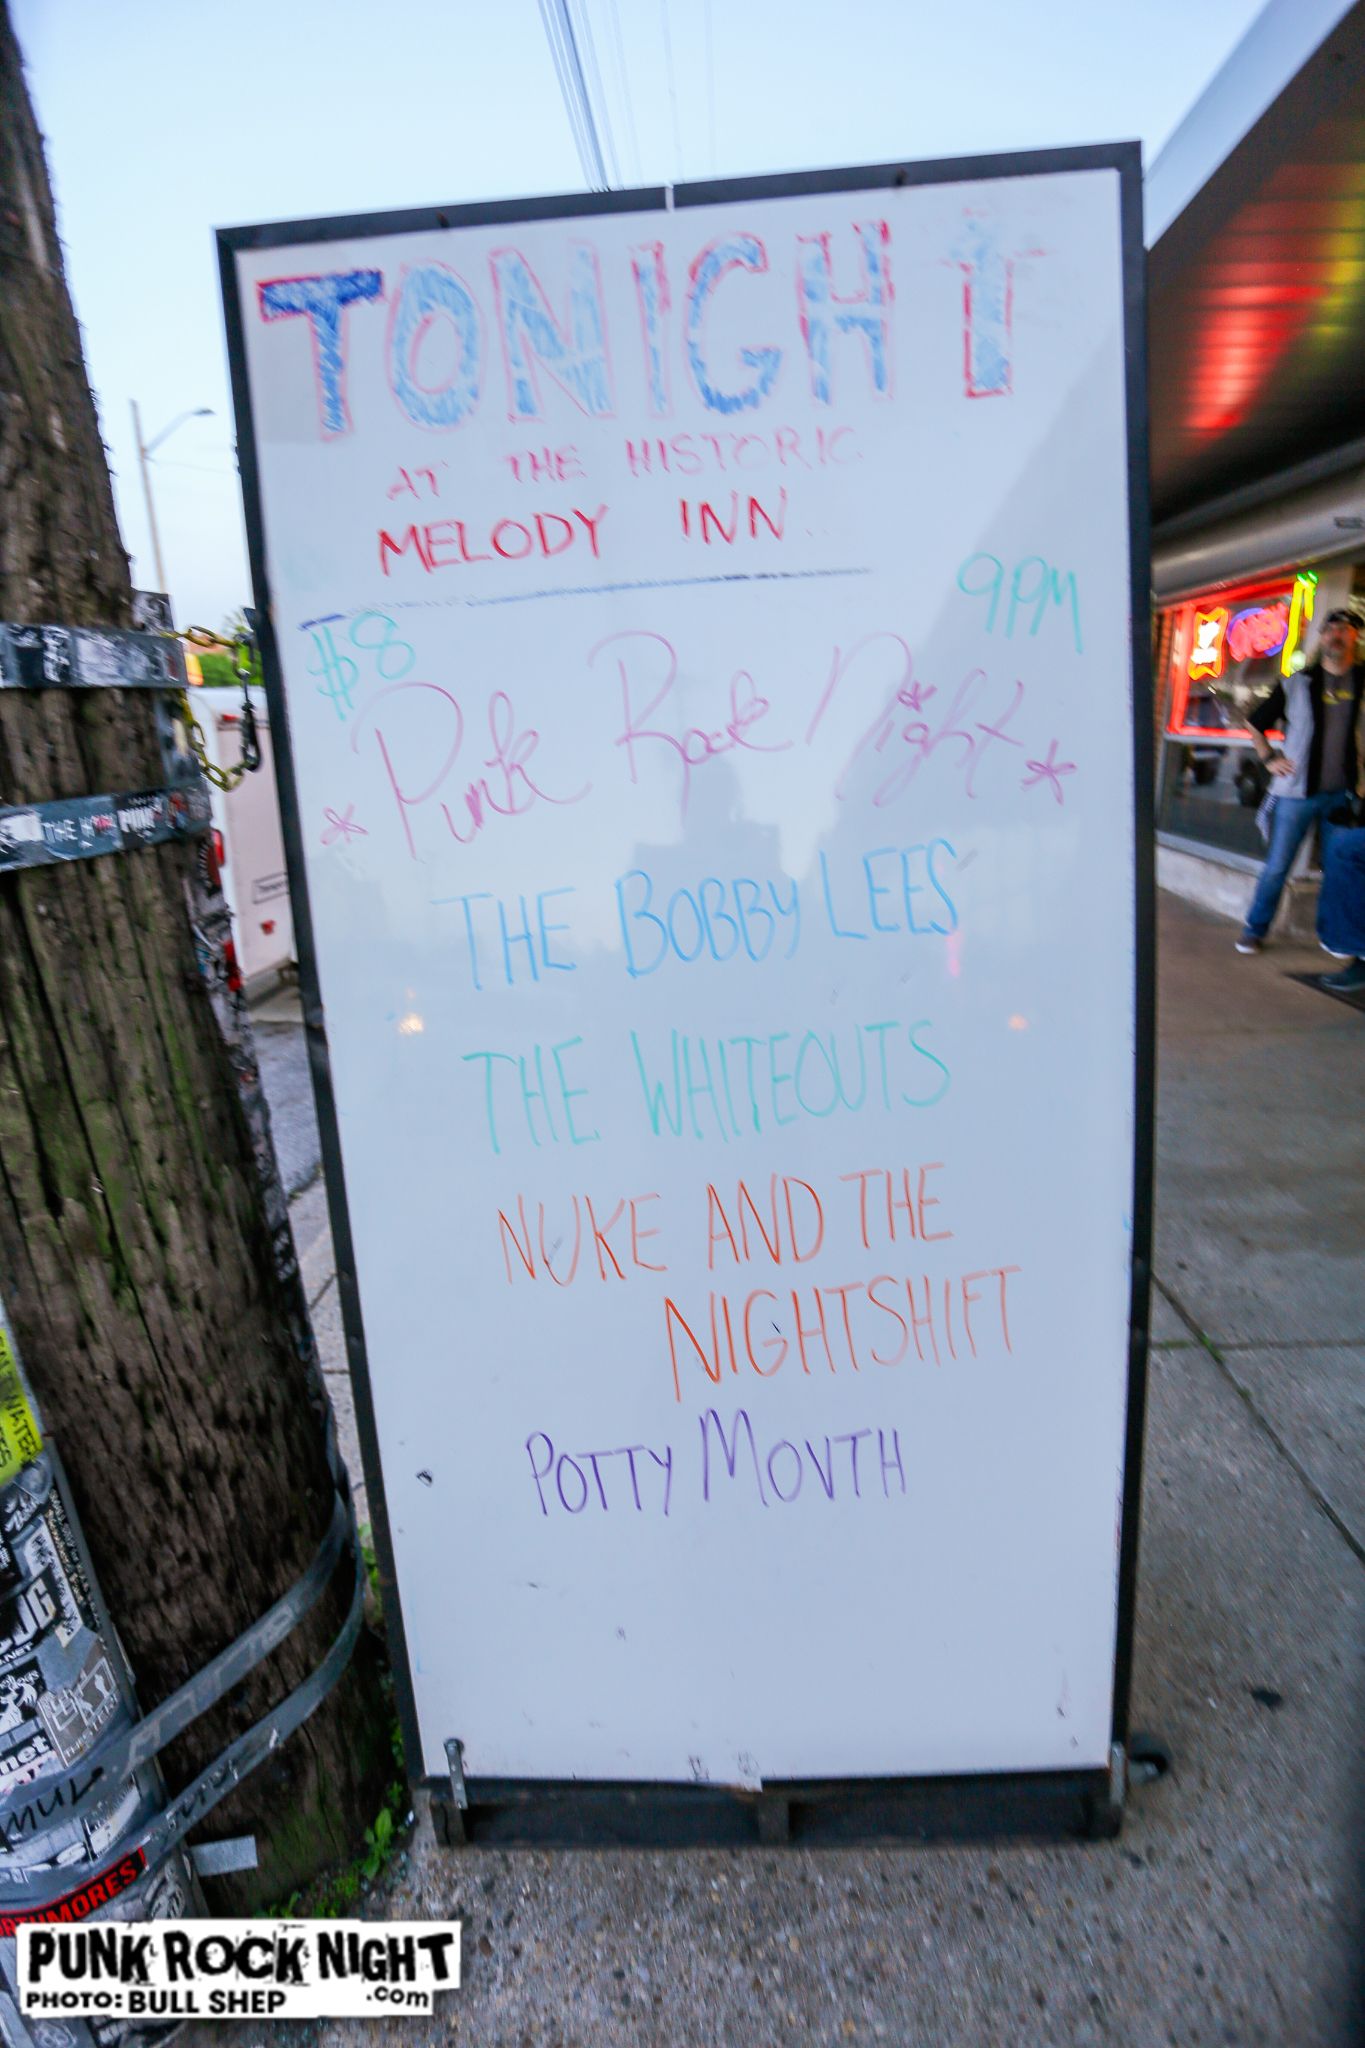 TONIGHT
AT THE HISTORIC
MELODY INN
$8
9PM
* Punk Rock Night *
THE BOBBY LEES
THE WHITEOUTS
NUKE AND THE
NIGHTSHIFT
POTTY MOUTH
PUNK ROCK NIGHT
.com
PHOTO: BULL SHEP